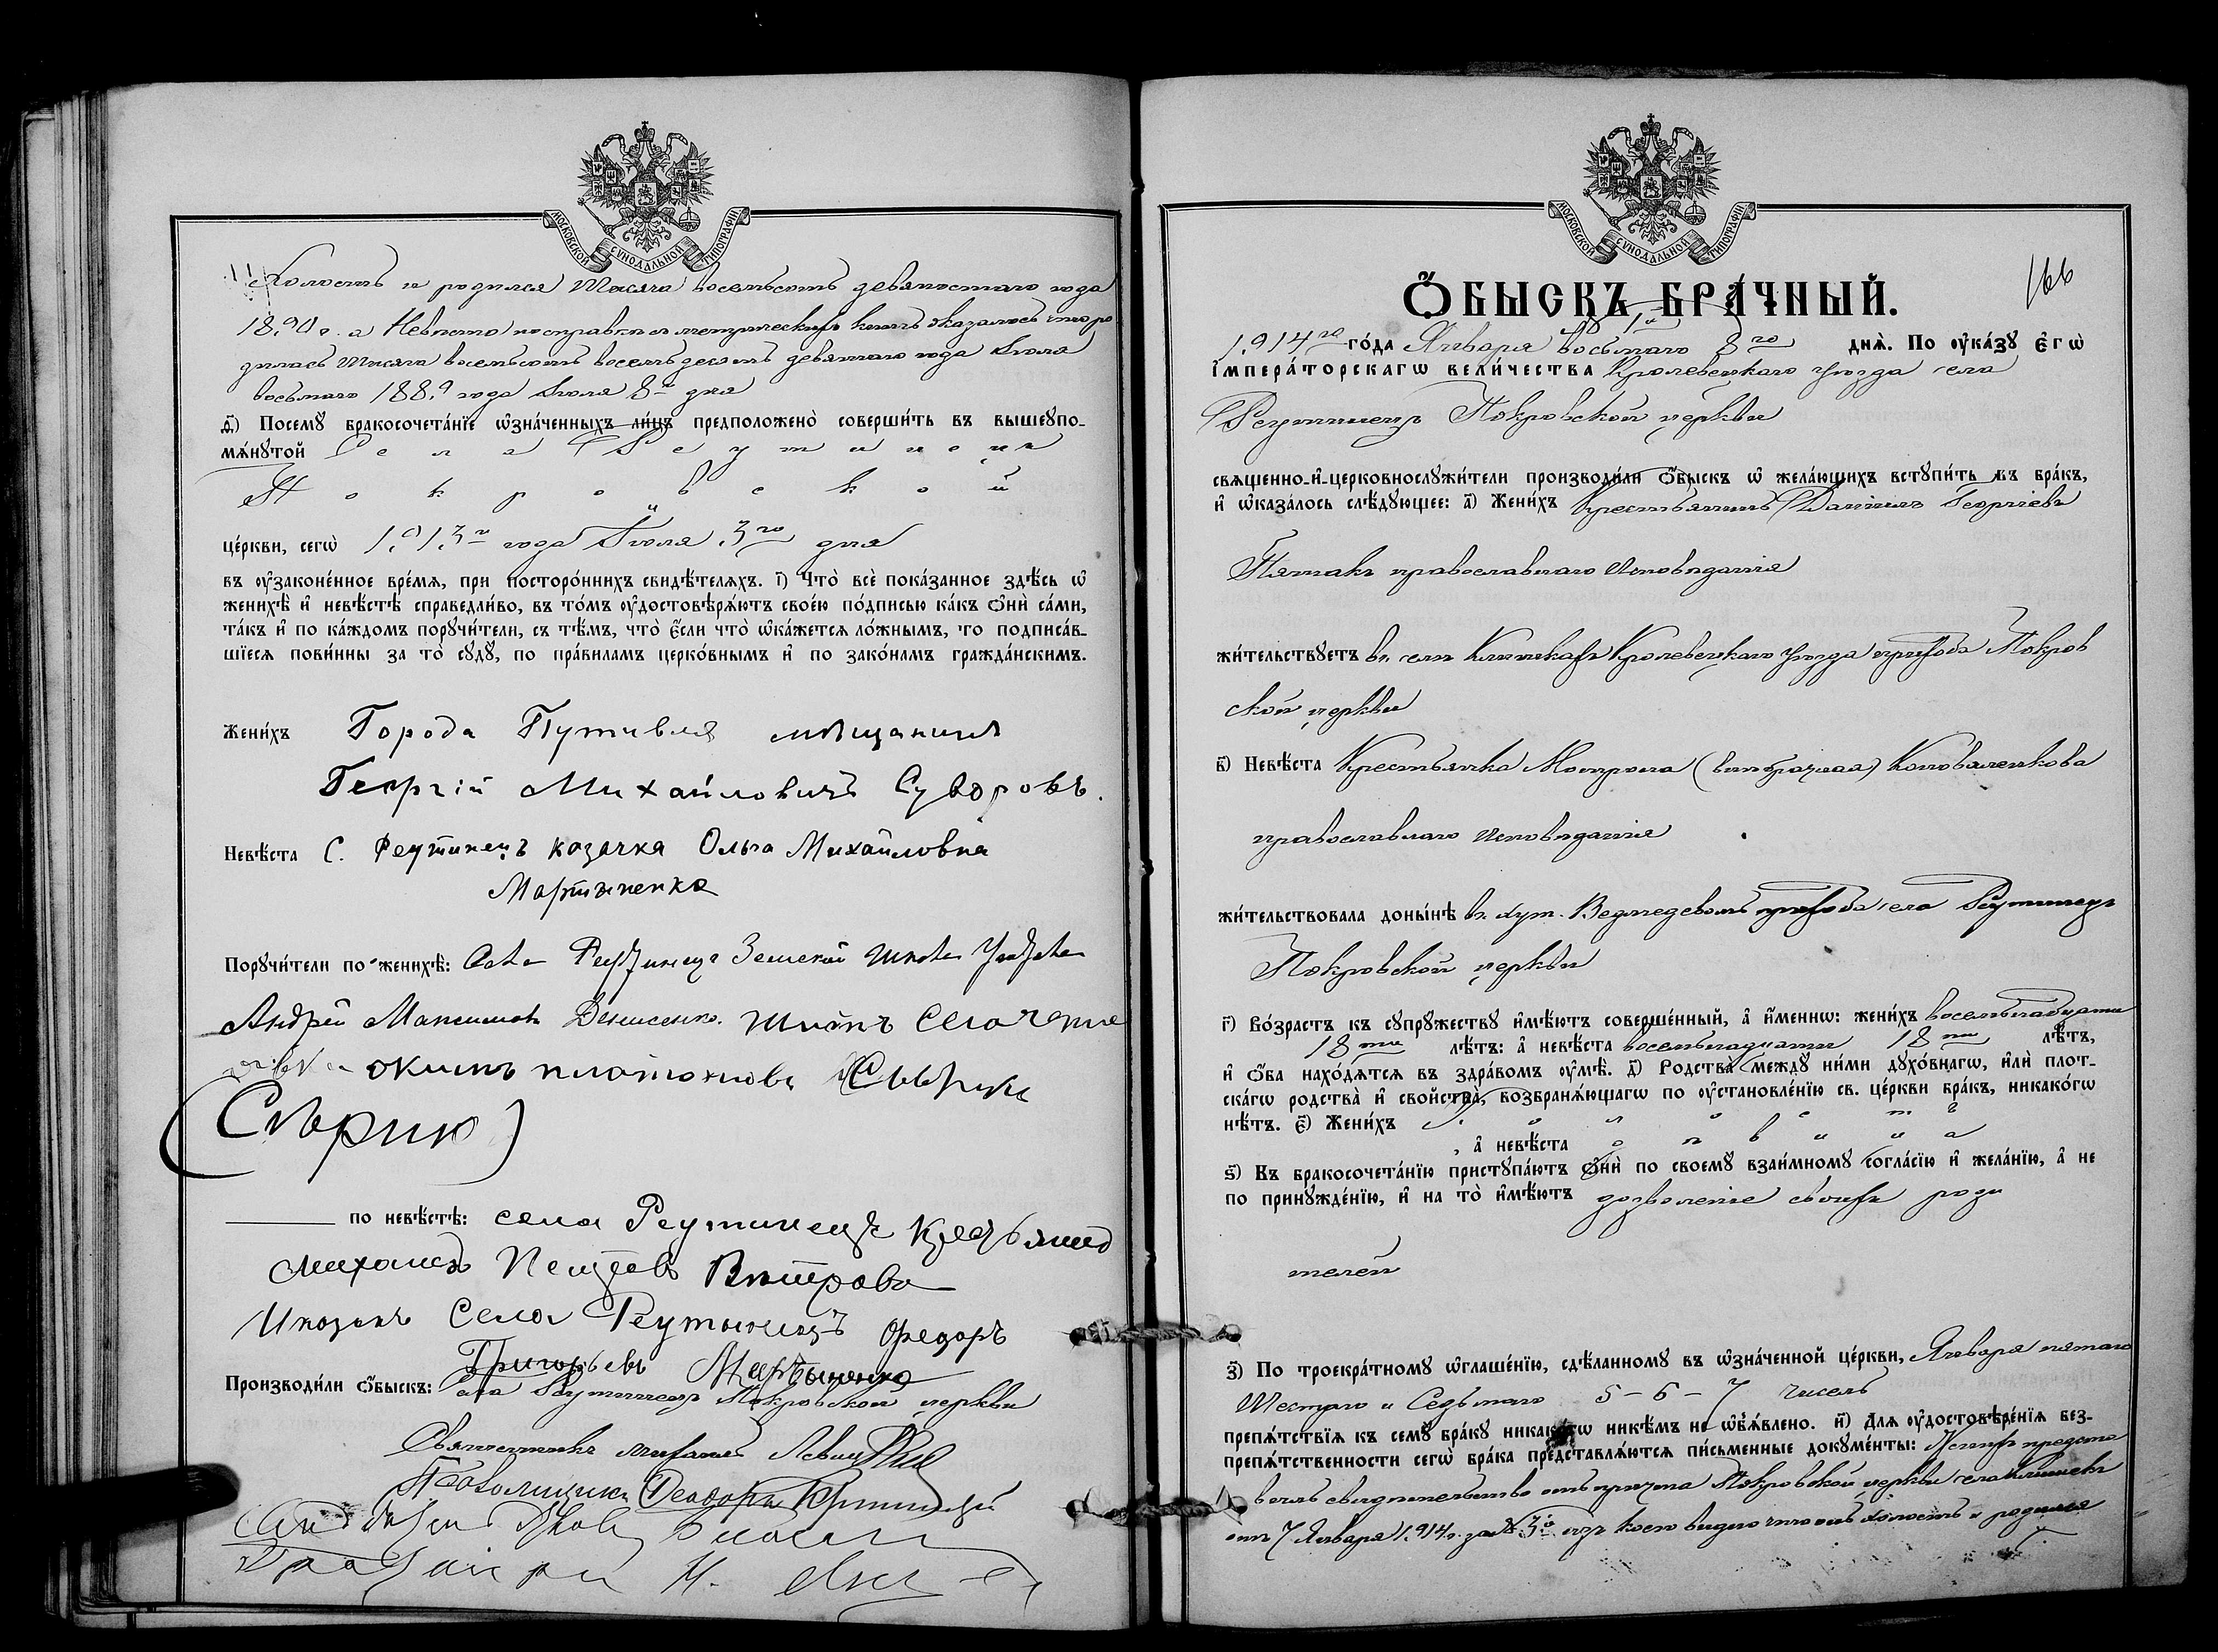 МОСКОВСКОЙ СѴНОДАЛЬНОЙ ТИПОГРАФІИ
Холостъ и родился тысяча восемьсотъ девяностаго года
1890 г. а Невѣста по справкѣ съ метрическихъ книгъ оказалось что ро
дилась тысяча восемьсотъ восемьдесятъ девятаго года Іюля
восьмаго 1889 года Іюля 8го дня
ѳ҃) Посемꙋ̀ бракосочета́нїе ѡ҆зна́ченныхъ ли́цъ предположено̀ соверши́ть въ вышеꙋпо-
мѧ́нꙋтой Села Реутинецъ
Покровской
це́ркви, сегѡ̀ 1913го года Іюля 3го дня
въ ᲂу҆законе́нное вре́мѧ, при посторо́ннихъ свидѣ́телѧхъ. і҃) Что̀ всѐ пока́занное здѣ́сь ѡ҆
женихѣ̀ и҆ невѣ́стѣ справедли́во, въ то́мъ ᲂу҆достовѣрѧ́ютъ свое́ю по́дписью ка́къ ѻ҆нѝ са́ми,
та́къ и҆ по ка́ждомъ порꙋчи́тели, съ тѣ́мъ, что̀ є҆́сли что̀ ѡ҆ка́жетсѧ ло́жнымъ, то подписа́в-
шїесѧ пови́нны за то̀ сꙋдꙋ̀, по пра́виламъ церко́внымъ и҆ по зако́намъ гражда́нскимъ.
Жени́хъ Города Путивля мѣщанинъ
Георгій Михайловичъ Суворовъ.
Невѣ́ста С. Реутинецъ козачка Ольга Михайловна
Мартыненко
Порꙋчи́тели по женихѣ̀: Села Реутинецъ Земской школы Учитель
Андрей Максимовъ Денисенко.
окимъ платоновъ
(Сѣрик)
по невѣ́стѣ: села Реутинецъ
Михаилъ Вѣтрова
Икозакъ Села Реутинецъ Федоръ
Григорьевъ Мартыненко
Производи́ли ѻ҆́быскъ: Села Реутинецъ Покровской церкви
Священникъ Михаилъ Левицкій
Псаломщикъ Ѳеодоръ
МОСКОВСКОЙ СѴНОДАЛЬНОЙ ТИПОГРАФІИ
166
Ѻ҆́БЫСКЪ БРА́ЧНЫЙ.
1914го го́да Января восьмаго 8го днѧ̀. По ᲂу҆ка́зꙋ є҆гѡ̀
і҆мпера́торскагѡ вели́чества Кролевецкаго уѣзда села
Реутинецъ Покровской церкви
свѧщенно-и҆-церковнослꙋжи́тели производи́ли ѻ҆́быскъ ѡ҆ жела́ющихъ встꙋпи́ть въ бра́къ,
и҆ ѡ҆каза́лось слѣ́дꙋющее: а҃) Жени́хъ Крестьянинъ Даніилъ Георгіевъ
Пятакъ православнаго исповѣданія
жи́тельствꙋетъ въ селѣ Клишкахъ Кролевецкаго уѣзда прихода Покров
ской церкви
в҃) Невѣ́ста Крестьянка Мотрона (внѣбрачная) Коноваленкова
православнаго исповѣданія
жи́тельствовала доны́нѣ въ хут. Ведмедевомъ прихода села Реутинецъ
Покровской церкви
г҃) Во́зрастъ къ сꙋпрꙋ́жествꙋ и҆мѣ́ютъ соверше́нный, а҆ и҆́меннѡ: жени́хъ восемьнадцати
18ти лѣ́тъ: а҆ невѣ́ста восемьнадцати 18ти лѣ́тъ,
и҆ ѻ҆́ба нахо́дѧтсѧ въ здра́вомъ ᲂу҆мѣ̀. д҃) Родства̀ междꙋ̀ ни́ми дꙋхо́внагѡ, и҆лѝ плот-
ска́гѡ родства̀ и҆ свойства̀, возбранѧ́ющагѡ по ᲂу҆становле́нїю св. це́ркви бра́къ, никако́гѡ
нѣ́тъ. є҃) Жени́хъ холостъ
, а҆ невѣ́ста дѣвица
ѕ҃) Къ бракосочета́нїю пристꙋпа́ютъ ѻ҆нѝ по своемꙋ̀ взаи́мномꙋ согла́сїю и҆ жела́нїю, а҆ не
по принꙋжде́нїю, и҆ на то̀ и҆мѣ́ютъ дозволеніе своихъ роди
телей
з҃) По троекра́тномꙋ ѡ҆глаше́нїю, сдѣ́ланномꙋ въ ѡ҆зна́ченной це́ркви, Января пятаго
Шестаго и Седьмаго 5-6-7 чиселъ
препѧ́тствїѧ къ семꙋ̀ бра́кꙋ никако́гѡ никѣ́мъ не ѡ҆б̾ѧ́влено. и҃) Длѧ ᲂу҆достовѣре́нїѧ без-
препѧ́тственности сегѡ̀ бра́ка представлѧ́ютсѧ пи́сьменные докꙋме́нты: Женихъ предста
вилъ свидѣтельство отъ причта Покровской церкви села Клишекъ
отъ 7 Января 1914 г. за № 3й изъ коего видно что онъ холостъ и родился